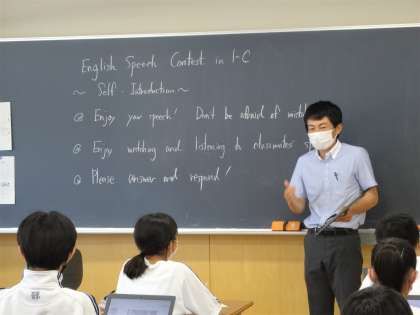 English Speech Contest in 1-C
~ Self-Introduction ~
@ Enjoy your speech! Don't be afraid of
@ Enjoy watching and listening to classmates'
@ Please answer and respond!